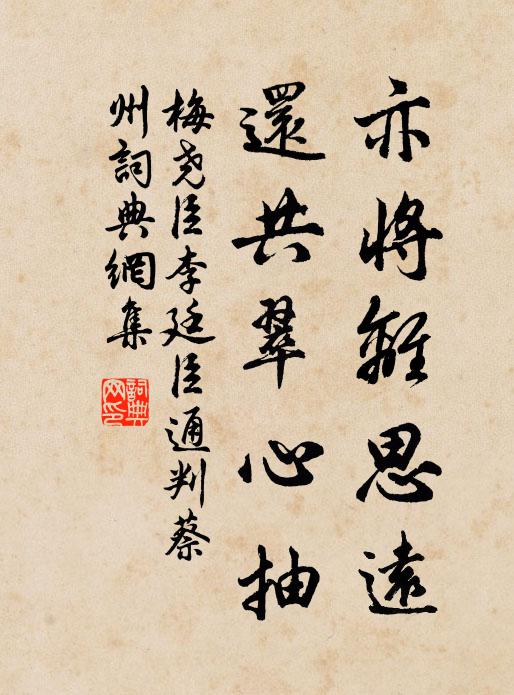 亦将離思遠
還共翠心抽
梅尧臣李廷臣通判蔡
州詞典網集
詞典
网印